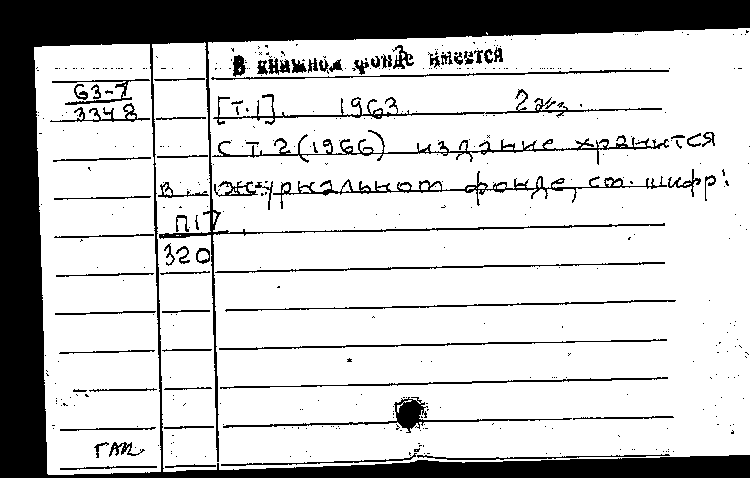 В книжном фонде имеется
63-7
3348
[Т.1]. 1963. 2 экз.
С Т. 2 (1966) издание хранится
в журнальном фонде, см. шифр:
П17
320